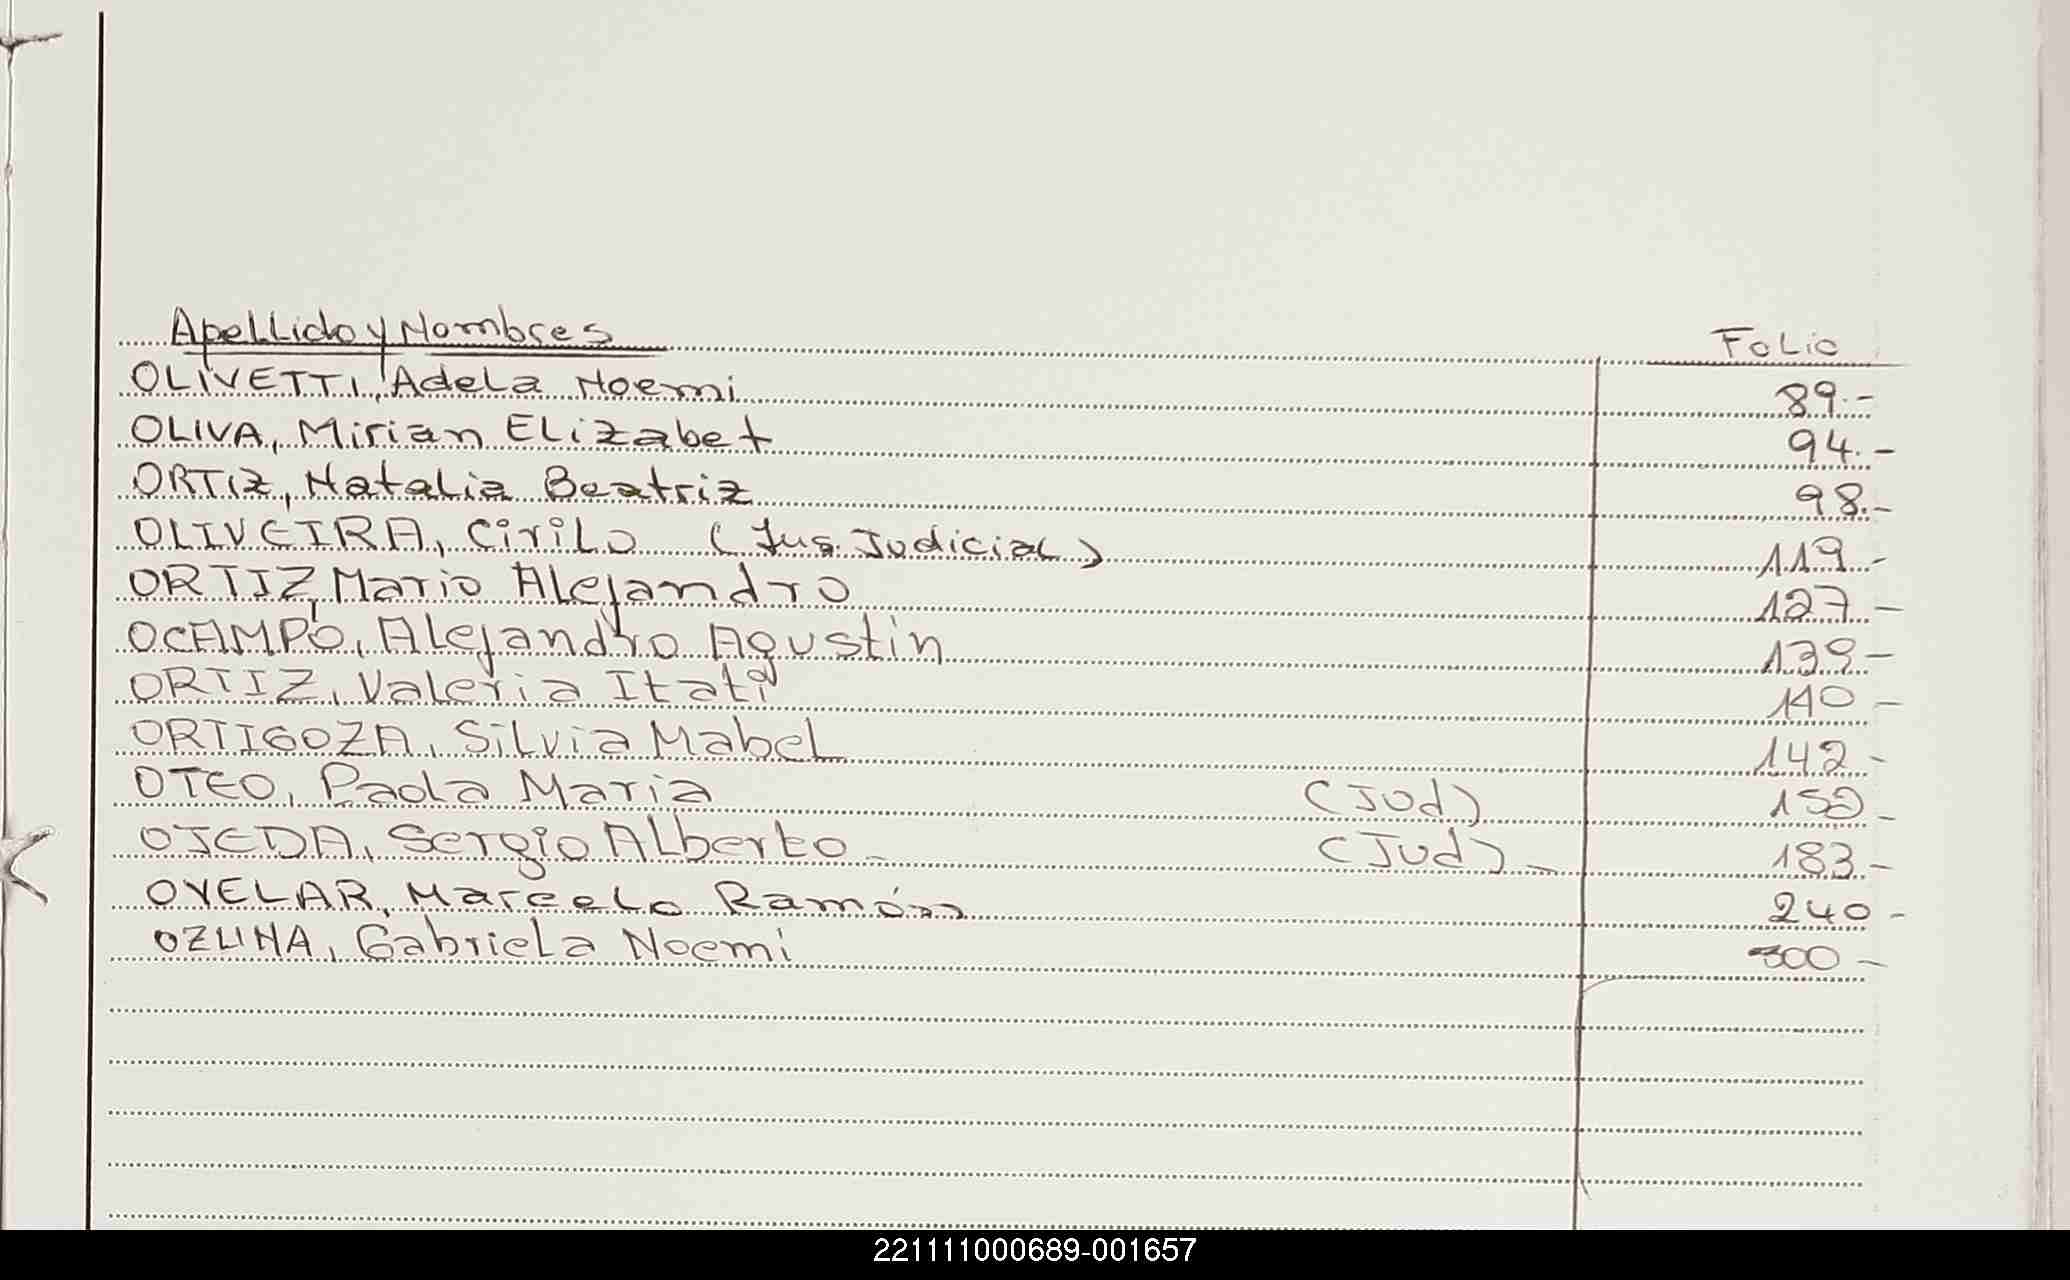 Apellido y Nombres Folio
OLIVETTI, Adela Noemi 89.-
OLIVA, Mirian Elizabet 94.-
ORTIZ, Natalia Beatriz 98.-
OLIVEIRA, Cirilo (Ins. Judicial) 119.-
ORTIZ, Mario Alejandro 127.-
OCAMPO, Alejandro Agustin 139-
ORTIZ, Valeria Itatí 140-
ORTIGOZA, Silvia Mabel 142-
OTEO, Paola Maria (Jud)
OJEDA, Sergio Alberto- (Jud)- 183-
OYELAR, Marcelo Ramón 240-
OZUNA, Gabriela Noemi 300-
221111000689-001657